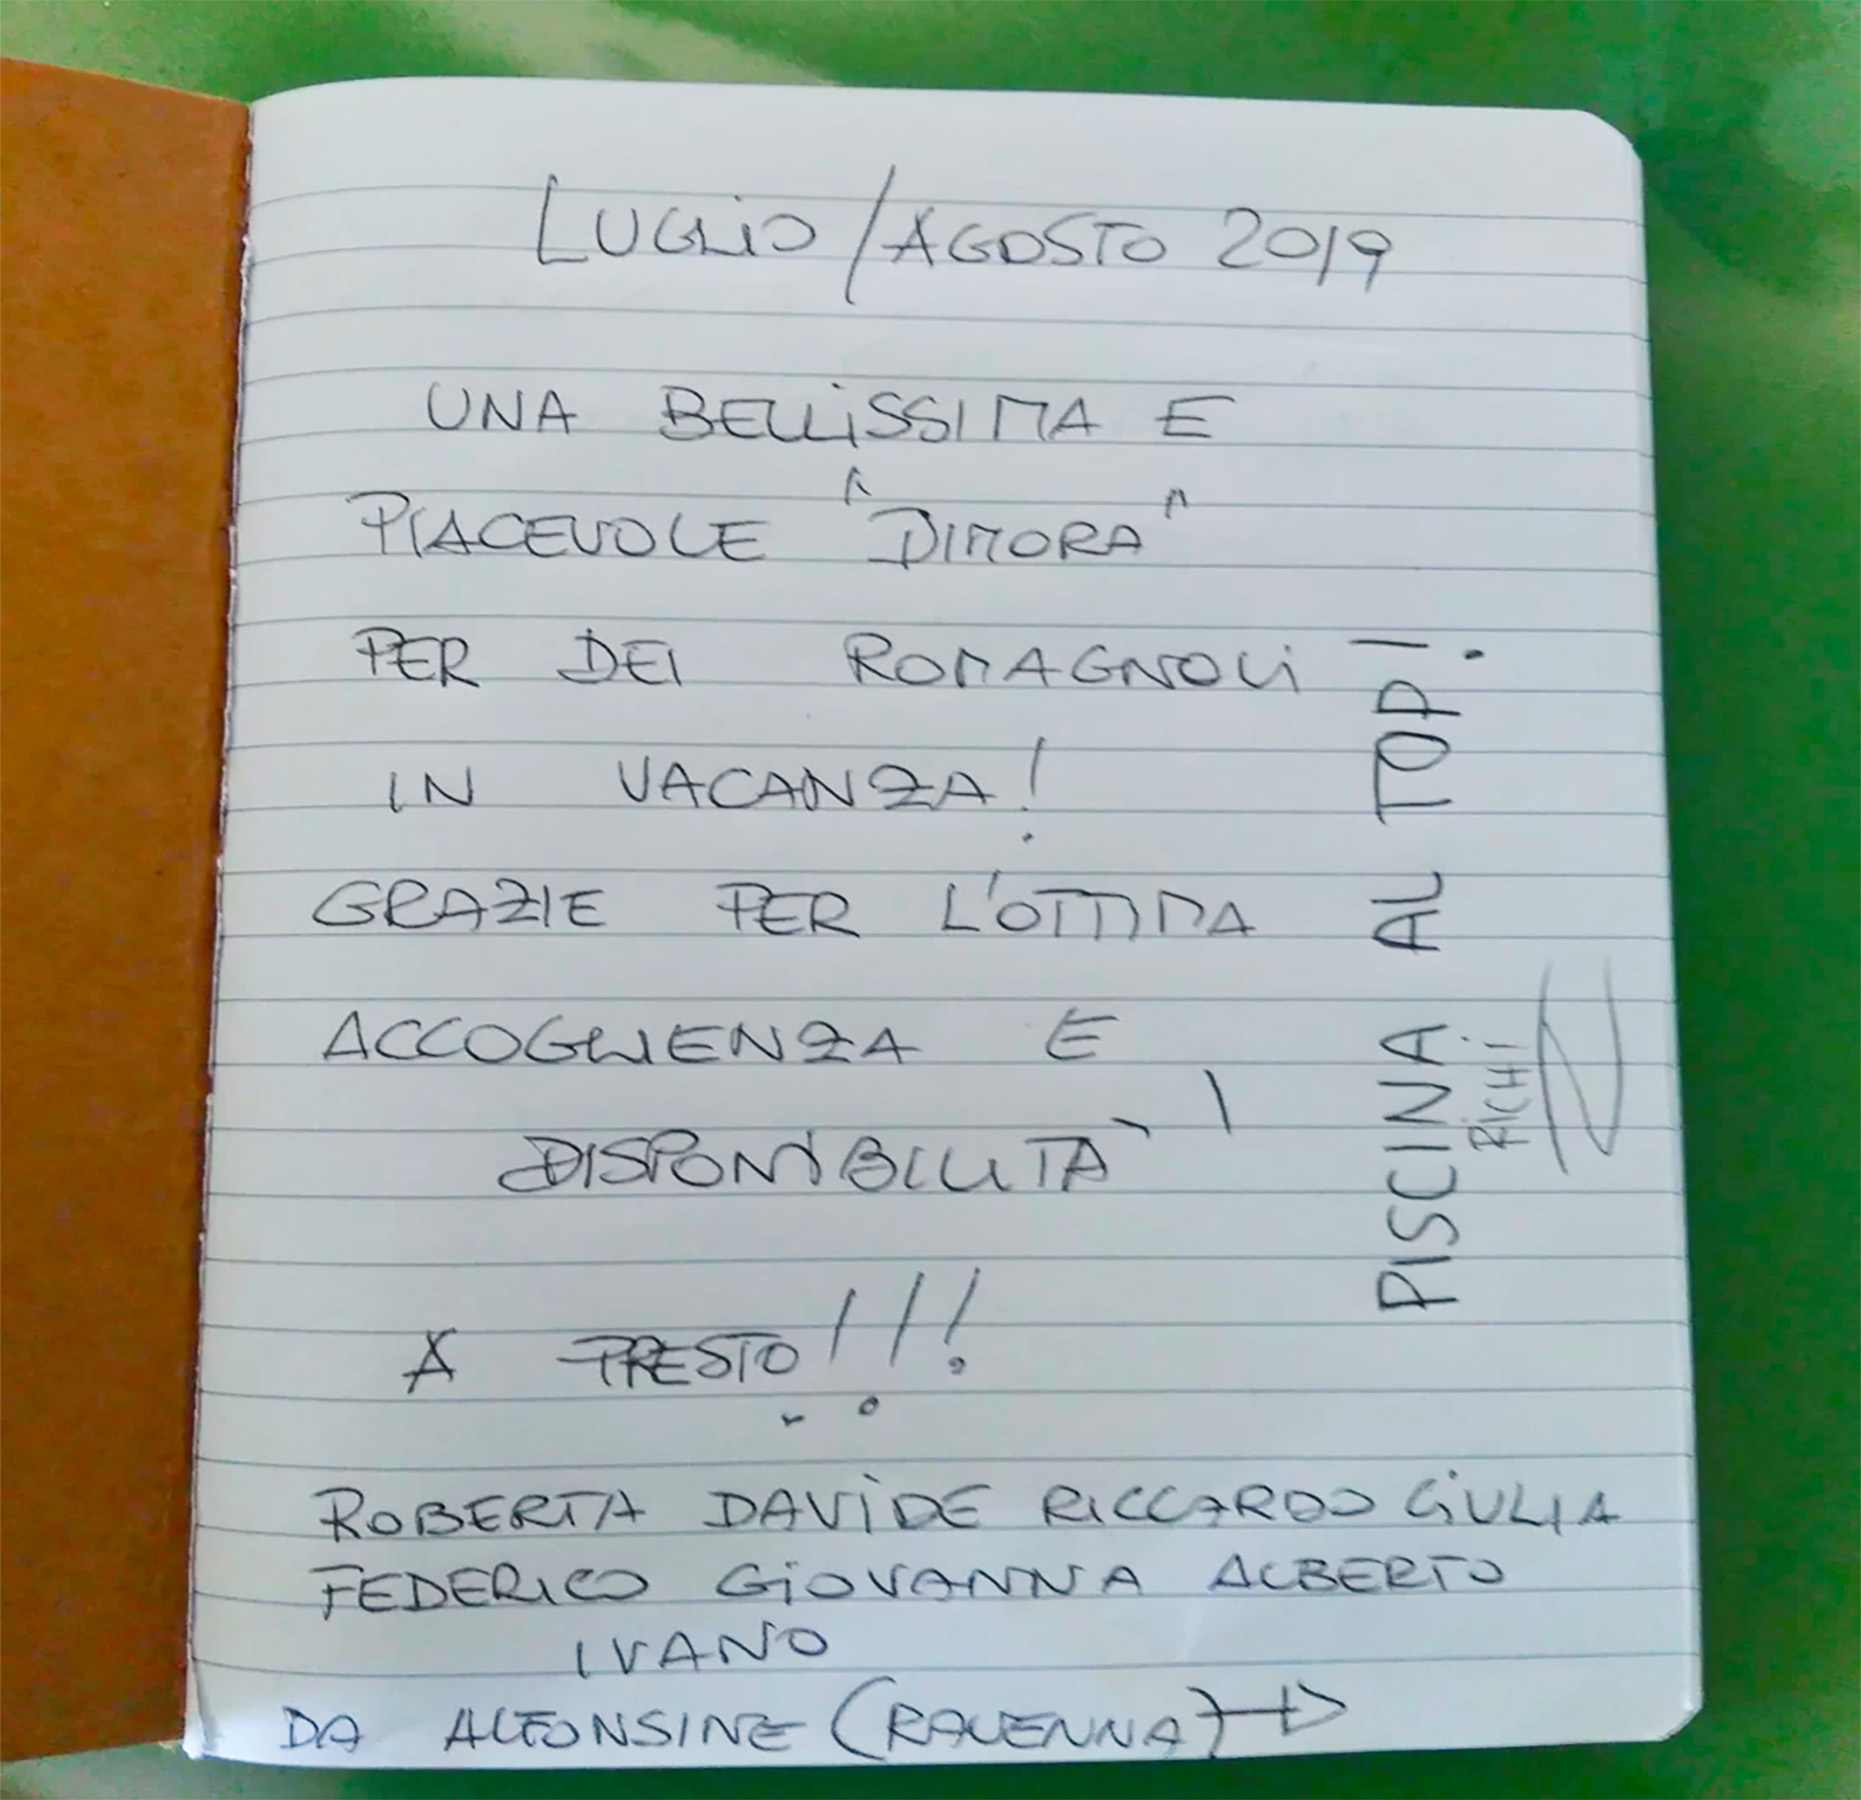 LUGLIO/AGOSTO 2019
UNA BELLISSIMA E
PIACEVOLE "DIMORA"
PER DEI ROMAGNOLI
IN VACANZA!
GRAZIE PER L'OTTIMA
ACCOGLIENZA E
DISPONIBILITA'
A PRESTO!!!
ROBERTA DAVIDE RICCARDO GIULIA
FEDERICO GIOVANNA ALBERTO
IVANO
DA ALFONSINE (RAVENNA)
PISCINA AL TOP!
RICHI